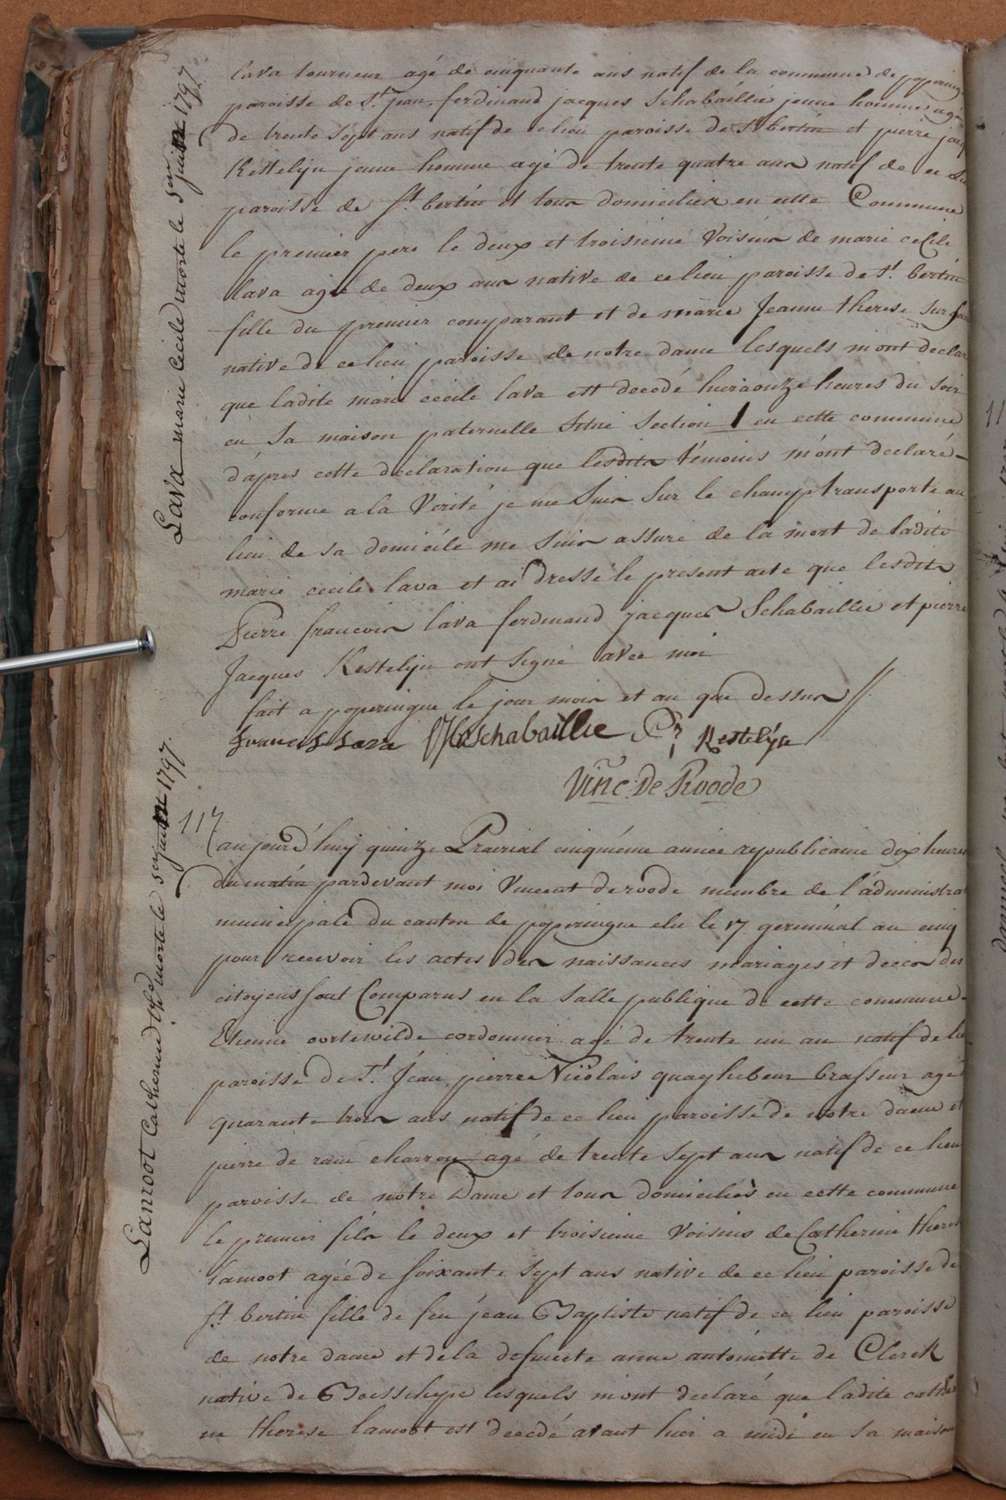 lava tourneur agé de cinquante ans natif de la commune de poperingue
paroisse de St. jean, ferdinand jacques Schabaillie jeune homme agé
de trente Sept ans natif de ce lieu paroisse de St bertin et pierre jacq
Kestelijn jeune homme agé de trente quatre ans natif de ce lieu
paroisse de St. bertin et tous domiciliés en cette Commune
le premier pere le deux et troisieme Voisins de marie cecile
lava agée de deux ans native de ce lieu paroisse de St. bertin
fille du premier comparant et de marie Jeanne therese
native de ce lieu paroisse de notre dame lesquels m'ont declaré
que ladite marie cecile lava est decedé hier a onze heures du soir
en Sa maison paternelle Sitné Section 1 en cette commune
d'apres cette declaration que lesdits témoins m'ont declaré
conforme a la Verité je me Suis Sur le champ transporté au
lieu de sa domicile me Suis assuré de la mort de ladite
marie cecile lava et ai dressé le present acte que lesdits
Pierre francois lava ferdinand jacques Schabaillie et pierre
Jacques Kestelijn ont signé avec moi
fait a poperingue le jour mois et an que dessus //
Schabaillie P. J. Kestelÿn
Vinc. De Roode
Lava marie Cecile morte le juin 1797
117
aujourd'huij quinze Prairial cinqiéme année republicaine dix heures
du matin pardevant moi Vincent de roode membre de l'administra
municipale du canton de poperingue elu le 17 germinal an cinq
pour recevoir les actes des naissances mariages et deces des
citoijens sont Comparus en la Salle publique de cette commune
Etienne oortewilde cordonnier agé de trente un an natif de
paroisse de St. Jean, pierre Nicolais quaghebeur brasseur agé
quarante trois ans natif de ce lieu paroisse de notre dame et
pierre de charron agé de trente Sept ans natif de ce lieu
paroisse de notre Dame et tous domiciliés en cette commune
le premier fils le deux et troisieme Voisins de Catherine theres
lamoot agée de Soixante Sept ans native de ce lieu paroisse de
St. bertin fille de feu jean Baptiste natif de ce lieu paroisse
de notre dame et de la defuncte anne antoinette de Clerck
native de Boesschepe lesquels m'ont declaré que ladite cathe
ne therese lamoot est decedé avant hier a midi en Sa maison
Lamoot Catherine Th. morte le juin 1797